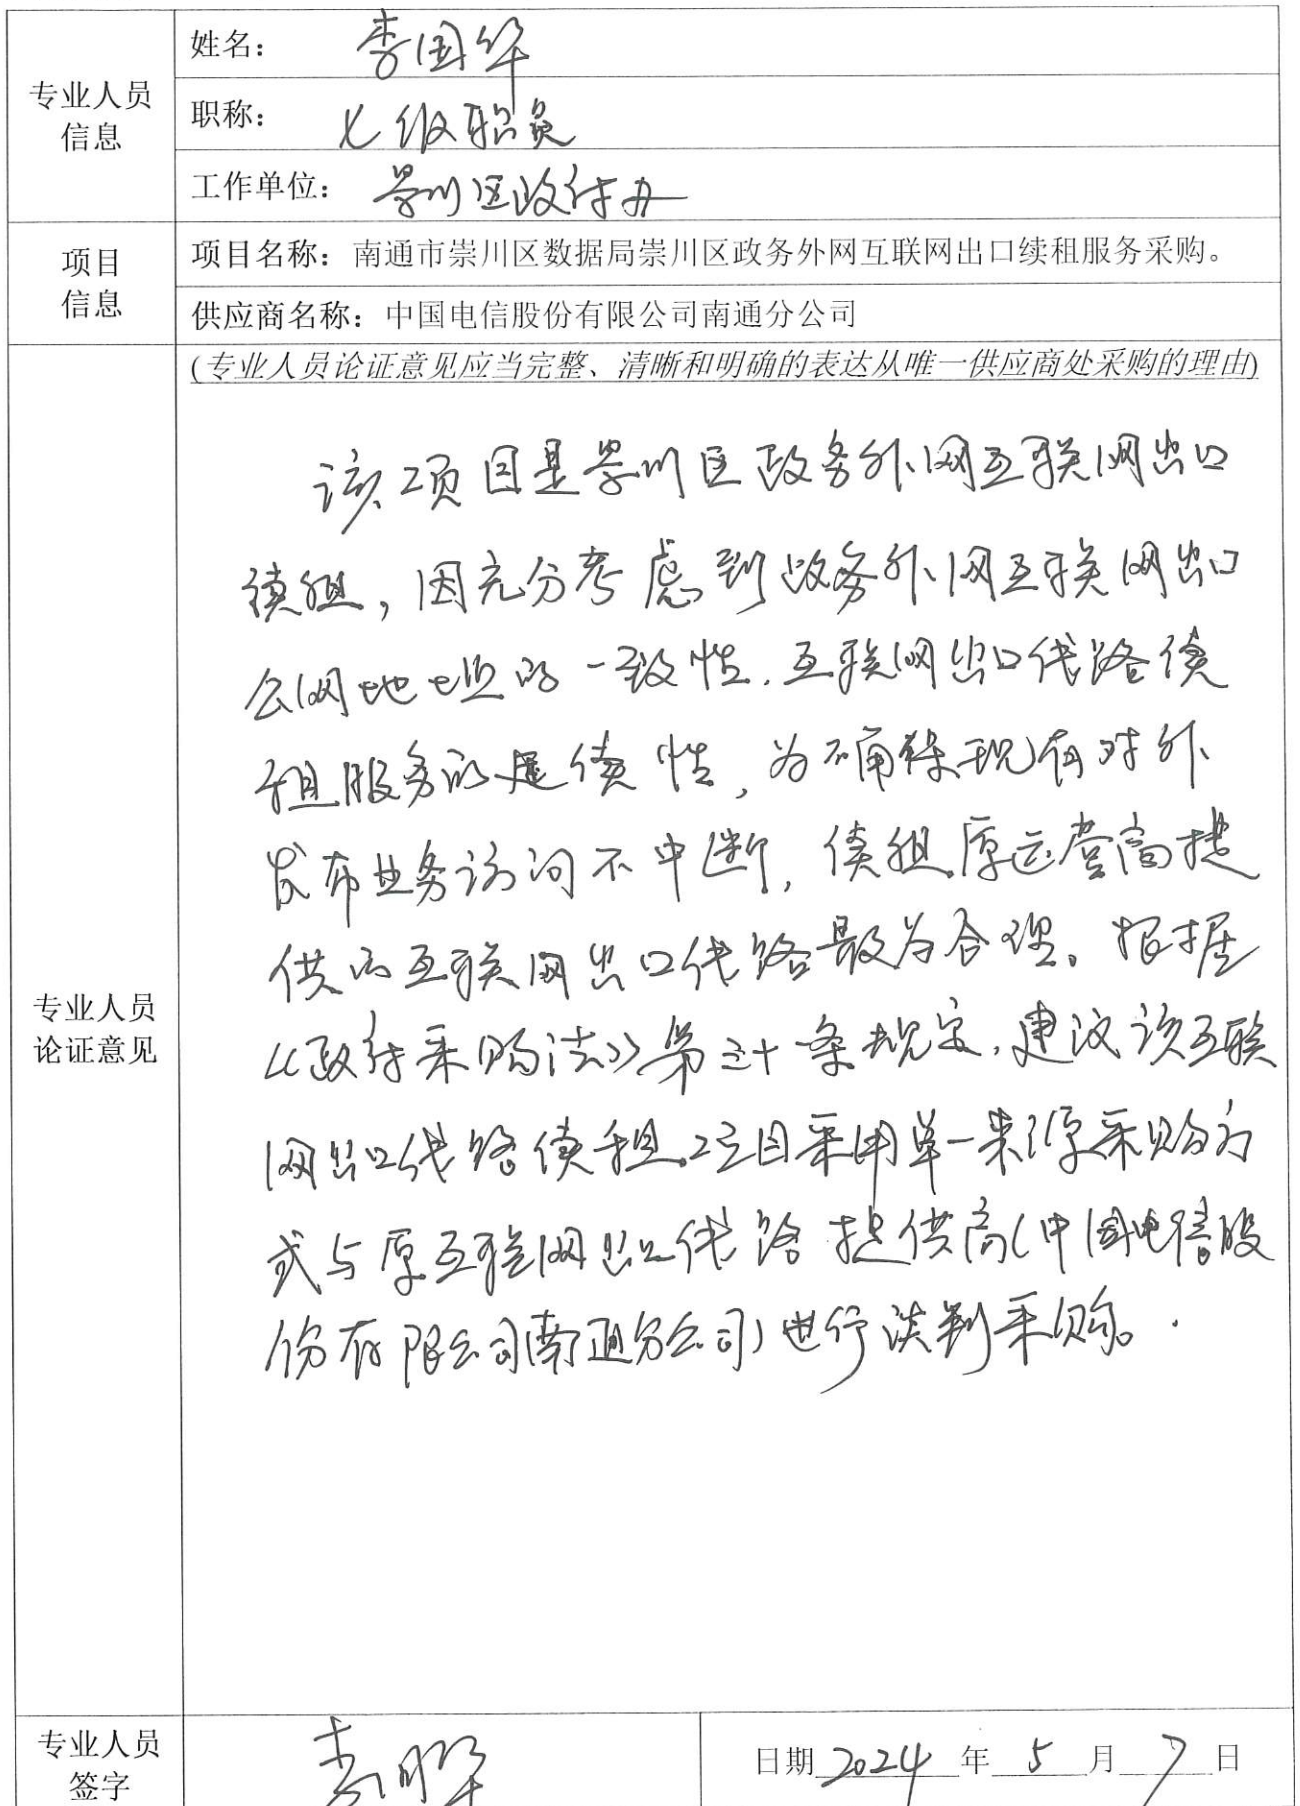 姓名： 李国华
专业人员
信息
职称： 七级职员
工作单位： 崇川区政府办
项目
信息
项目名称：南通市崇川区数据局崇川区政务外网互联网出口续租服务采购。
供应商名称：中国电信股份有限公司南通分公司
(专业人员论证意见应当完整、清晰和明确的表达从唯一供应商处采购的理由)
专业人员
论证意见
该项目是崇川区政务外网互联网出口
续租，因充分考虑到政务外网互联网出口
公网地址的一致性，互联网出口线路续
租服务的延续性，为确保现有对外
发布业务访问不中断，续租原运营商提
供的互联网出口线路最为合理。根据
《政府采购法》第三十一条规定，建议该互联
网出口线路续租项目采用单一来源采购方
式与原互联网出口线路提供商（中国电信股
份有限公司南通分公司）进行谈判采购。
专业人员
签字
李国华
日期 2024 年 5 月 7 日